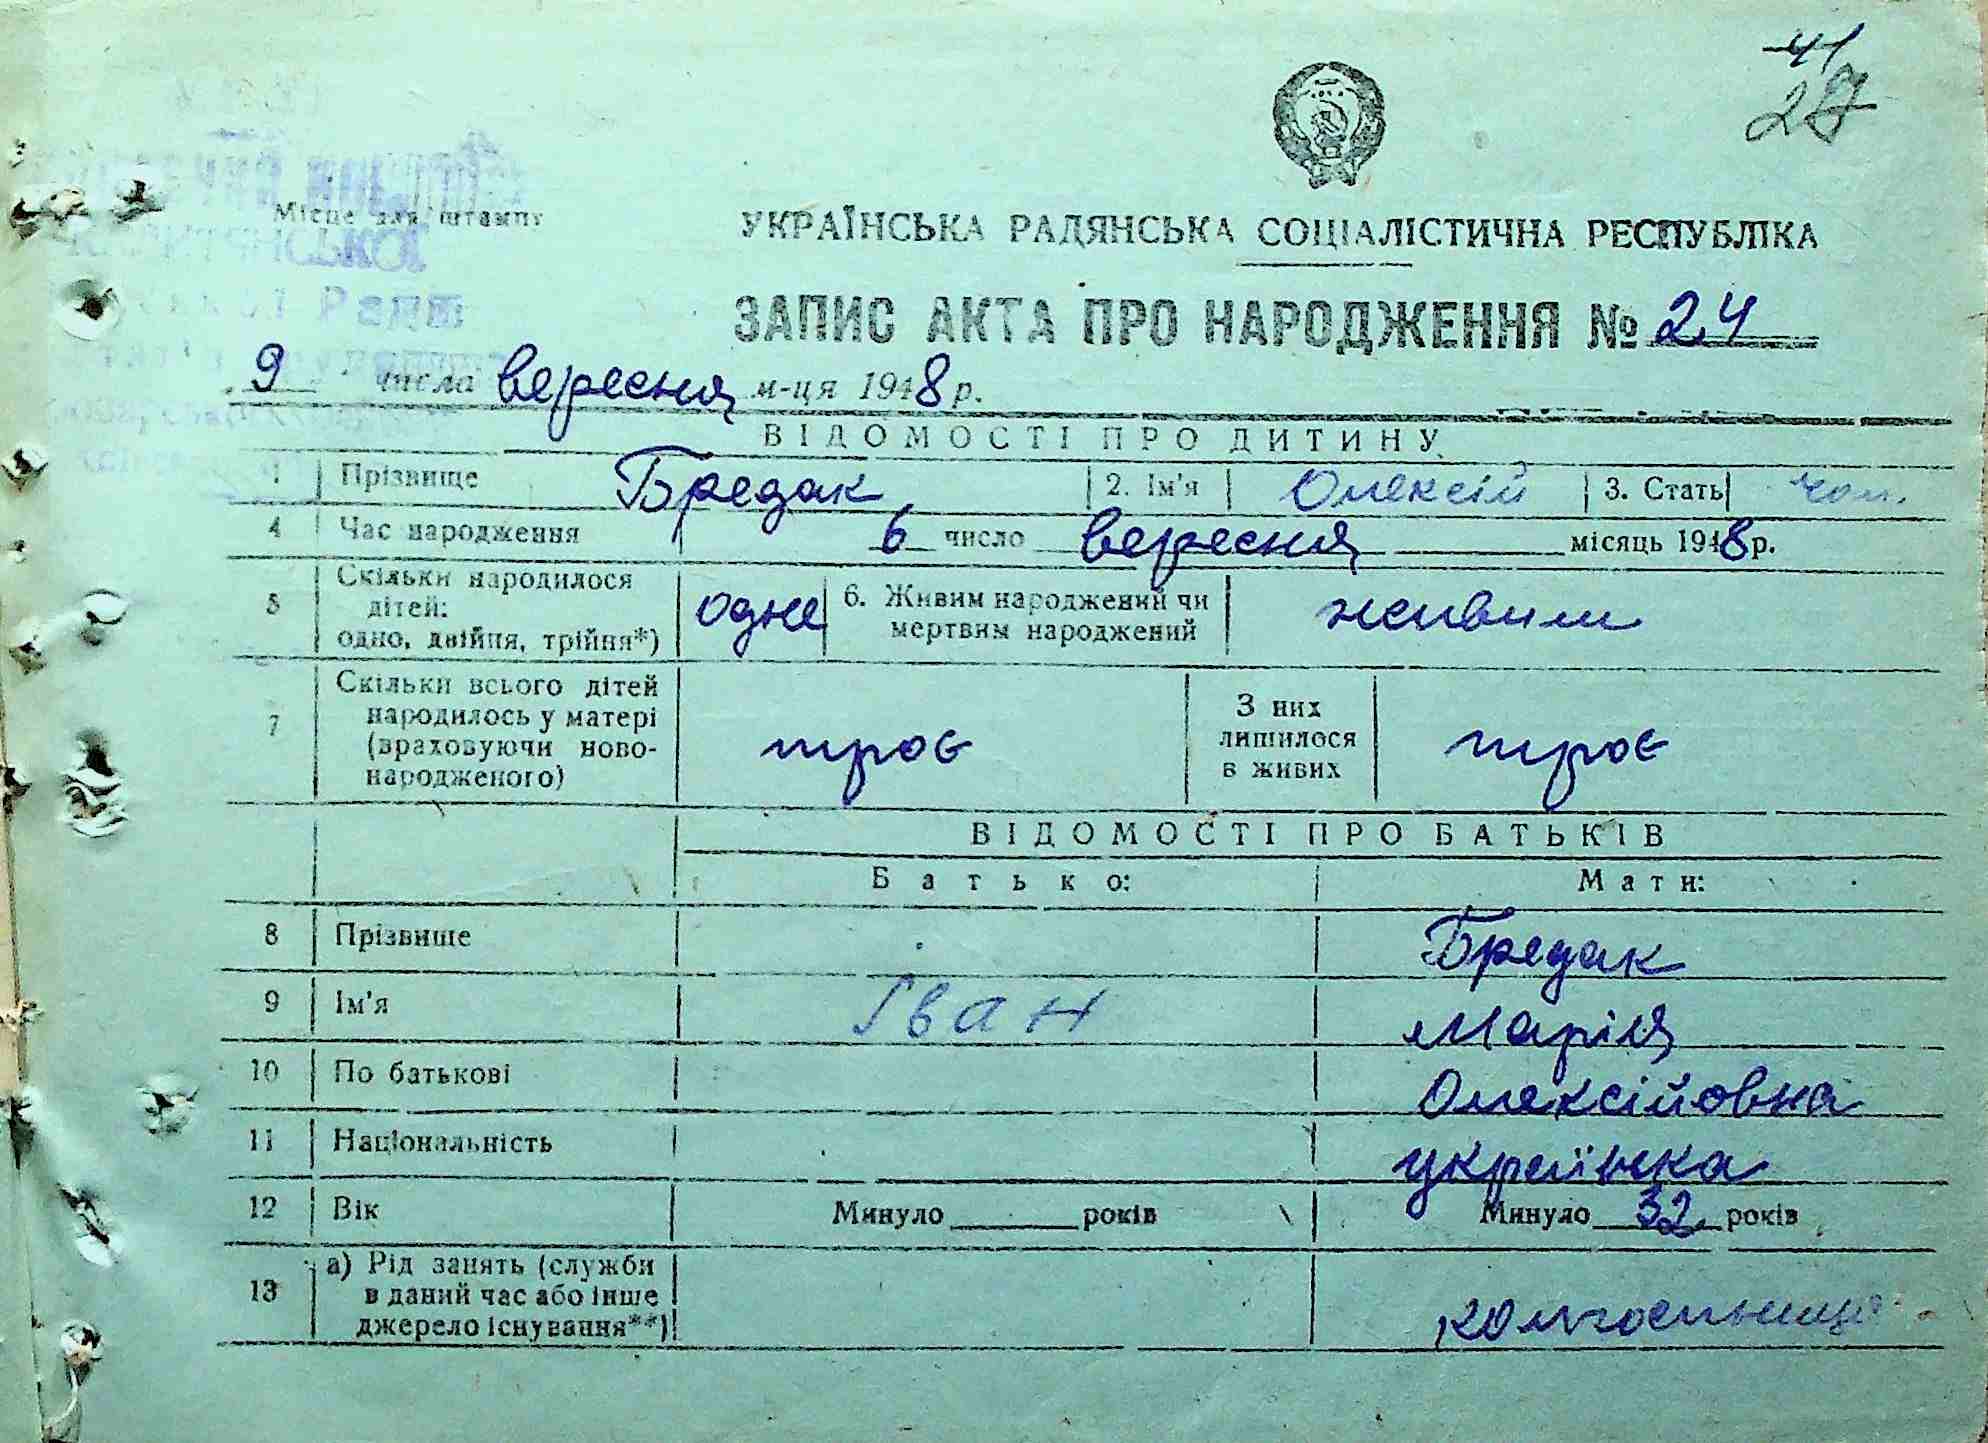 41
27
Місце для штампу
УКРАЇНСЬКА РАДЯНСЬКА СОЦІАЛІСТИЧНА РЕСПУБЛІКА
ЗАПИС АКТА ПРО НАРОДЖЕННЯ № 24
9 числа вересня м-ця 1948 р.
ВІДОМОСТІ ПРО ДИТИНУ
1 Прізвище Бредак 2. Ім'я Олексій 3. Стать чол.
4 Час народження 6 число вересня місяць 1948 р.
5 Скільки народилося дітей: одно, двійня, трійня*) одне 6. Живим народжений чи мертвим народжений живим
7 Скільки всього дітей народилось у матері (враховуючи новонародженого) троє З них лишилося в живих троє
ВІДОМОСТІ ПРО БАТЬКІВ
Батько: Мати:
8 Прізвище Бредак
9 Ім'я Іван Марія
10 По батькові Олексійовна
11 Національність українка
12 Вік Минуло років Минуло 32 років
13 а) Рід занять (служби в даний час або інше джерело існування**) колгоспниця